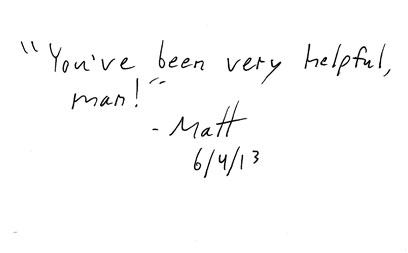 "You've been very helpful,
man!"
- Matt
6/4/13